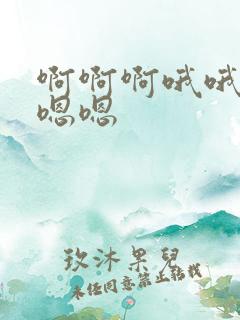 啊啊啊哦哦
嗯嗯
玫沐果兒
未经同意禁止转载